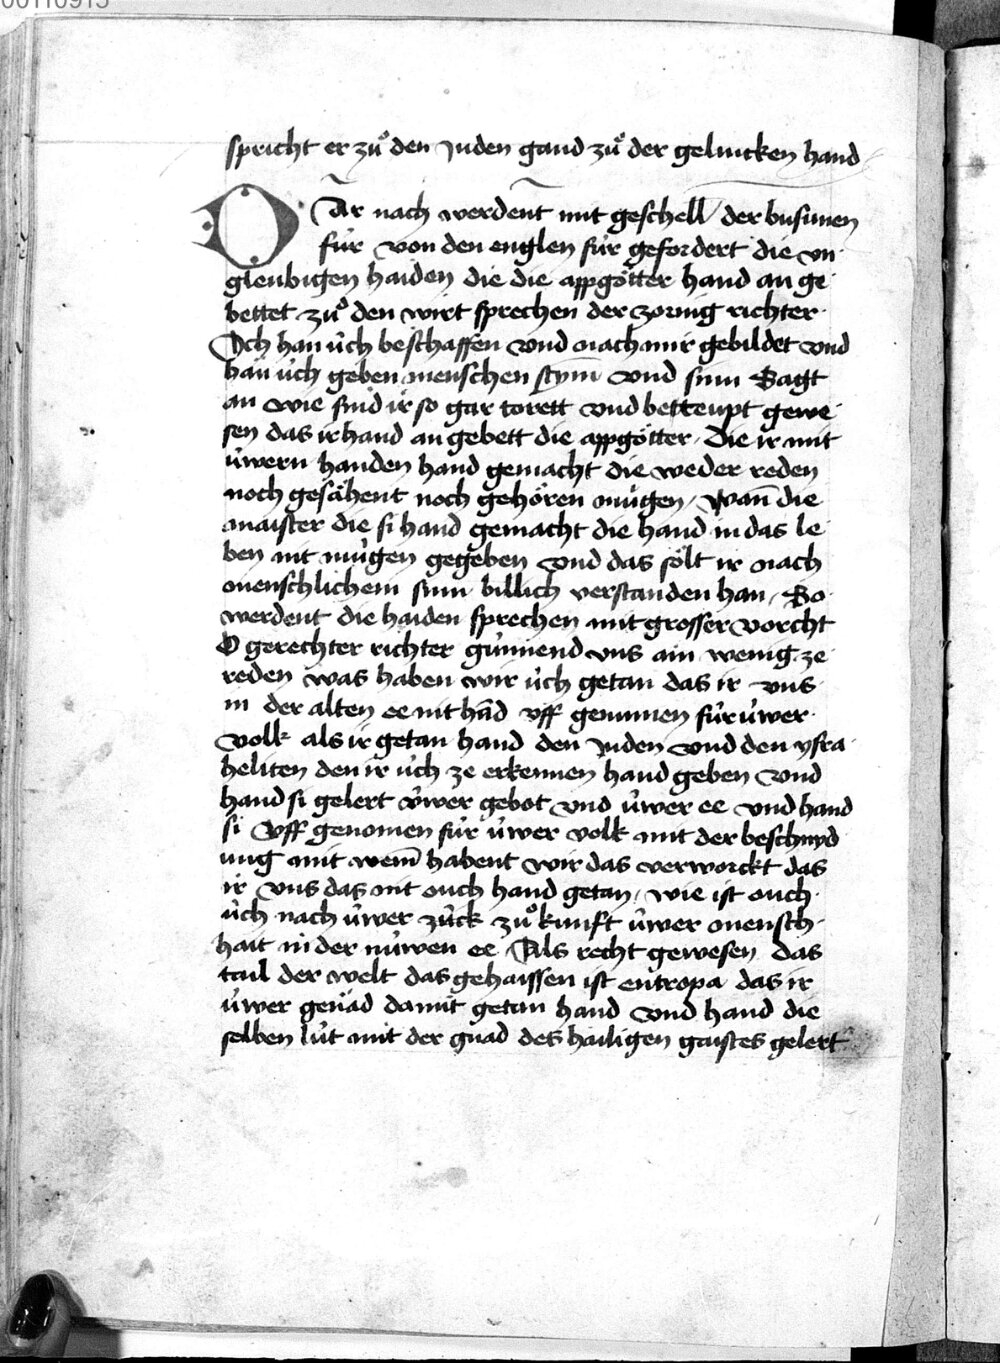 00110915
spricht er zů den Juden gand zů der gelincken hand
DAr nach werdent mit geschell der busunen
für von den englen für gefordert die vn
gleubigen haiden die die appgötter hand an ge
bettet zů den wirt sprechen der zornig richter
Ich han üch beschaffen vnd nach mir gebildet vnd
han üch geben menschen stym̄ vnd sinn Sagt
an wie sind ir so gar torett vnd betteupt gewe
sen das ir hand an gebett die appgötter Die ir mit
üwern handen hand gemacht die weder reden
noch gesähent noch gehören mügen wan̄ die
maister die si hand gemacht die hand in das le
ben nit mügen gegeben vnd das sölt ir nach
menschlichem sinn billich verstanden han So
werdent die haiden sprechen mit grosser vorcht
O gerechter richter günnend vns ain wenig ze
reden was haben wir üch getan das ir vns
in der alten ee nit hād vff genumen für üwer
volk als ir getan hand den Juden vnd den ysra
heliten den ir üch ze erkennen hand geben vnd
hand si gelert üwer gebot vnd üwer ee vnd hand
si vff genomen für üwer volk mit der beschnyd
ung mit wem̄ habent wir das verworckt das
ir vns das nit ouch hand getan wie ist ouch
üch nach üwer zůkunft üwer mensch
hait in der nüwen ee Als recht gewesen das
tail der welt das gehaissen ist entropa das ir
üwer genād damit getan hand vnd hand die
selben lüt mit der gnad des hailigen gaistes gelert